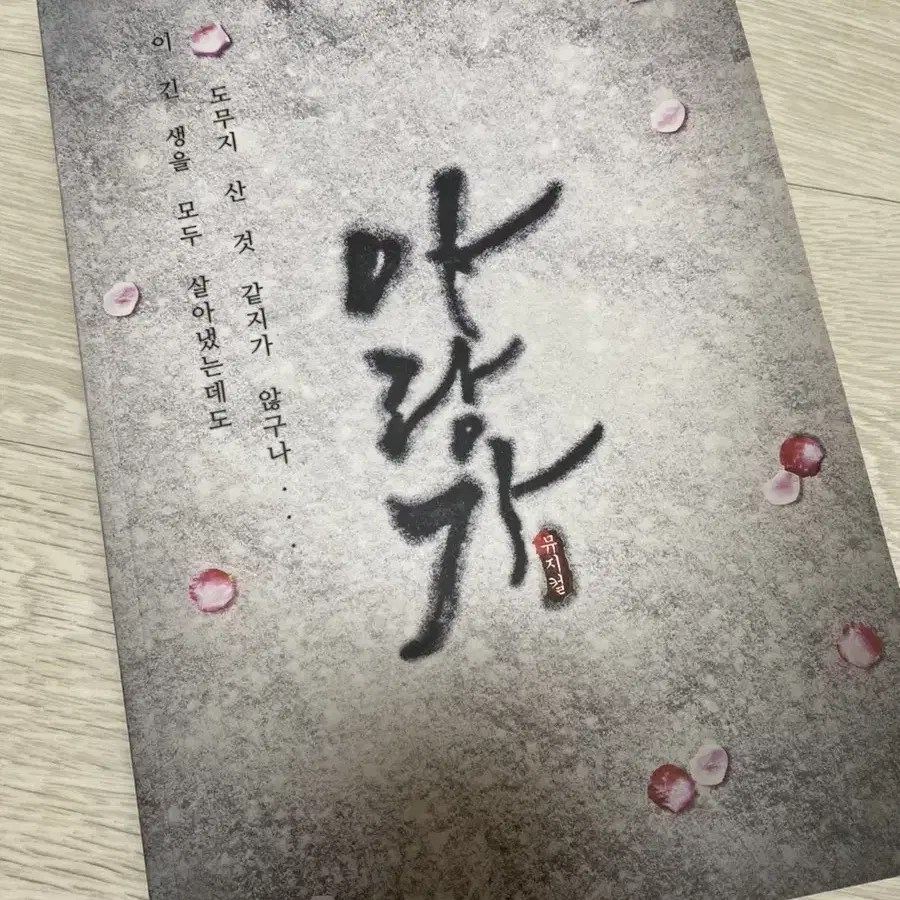 이 긴 생을 모두 살아냈는데도
도무지 산 것 같지가 않구나...
아랑가
뮤지컬